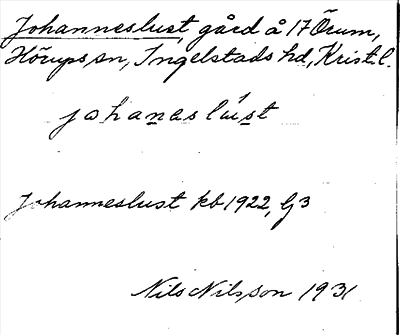 Johanneslust, gård å 17 Örum,
Hörups sn, Ingelstads hd, Krist. l.
johanaslúst
Johanneslust kb 1922, G3
Nils Nilsson 1931